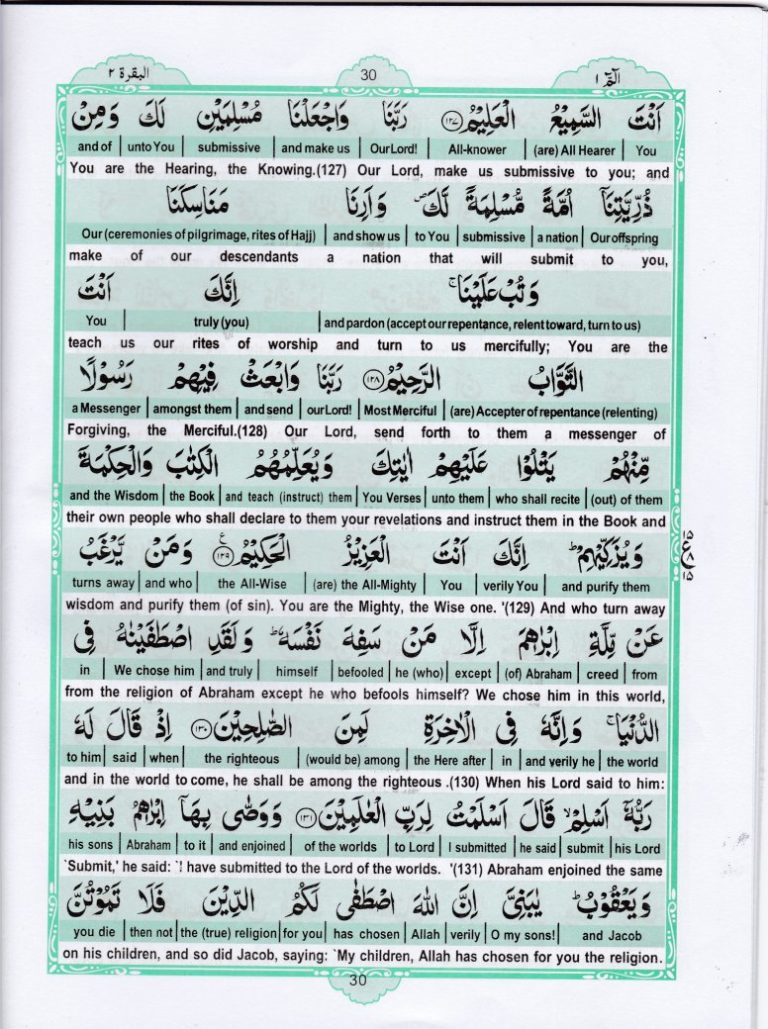 البقرة ٢ 30 الٓمّٓ ١
اَنْتَ السَّمِيْعُ الْعَلِيْمُ ﴿١٢٧﴾ رَبَّنَا وَاجْعَلْنَا مُسْلِمَيْنِ لَكَ وَمِنْ
and of | unto You | submissive | and make us | Our Lord! | All-knower | (are) All Hearer | You
You are the Hearing, the Knowing.(127) Our Lord, make us submissive to you; and
ذُرِّيَّتِنَآ اُمَّةً مُّسْلِمَةً لَّكَ ۪ وَاَرِنَا مَنَاسِكَنَا
Our (ceremonies of pilgrimage, rites of Hajj) | and show us | to You | submissive | a nation | Our offspring
make of our descendants a nation that will submit to you,
وَتُبْ عَلَيْنَا ۚ اِنَّكَ اَنْتَ
You | truly (you) | and pardon (accept our repentance, relent toward, turn to us)
teach us our rites of worship and turn to us mercifully; You are the
التَّوَّابُ الرَّحِيْمُ ﴿١٢٨﴾ رَبَّنَا وَابْعَثْ فِيْهِمْ رَسُوْلًا
a Messenger | amongst them | and send | our Lord! | Most Merciful | (are) Accepter of repentance (relenting)
Forgiving, the Merciful.(128) Our Lord, send forth to them a messenger of
مِّنْهُمْ يَتْلُوْا عَلَيْهِمْ اٰيٰتِكَ وَيُعَلِّمُهُمُ الْكِتٰبَ وَالْحِكْمَةَ
and the Wisdom | the Book | and teach (instruct) them | You Verses | unto them | who shall recite | (out) of them
their own people who shall declare to them your revelations and instruct them in the Book and
وَيُزَكِّيْهِمْ ؕ اِنَّكَ اَنْتَ الْعَزِيْزُ الْحَكِيْمُ ﴿١٢٩﴾ ع وَمَنْ يَّرْغَبُ
turns away | and who | the All-Wise | (are) the All-Mighty | You | verily You | and purify them
wisdom and purify them (of sin). You are the Mighty, the Wise one. '(129) And who turn away
عَنْ مِّلَّةِ اِبْرٰهٖمَ اِلَّا مَنْ سَفِهَ نَفْسَهٗ ؕ وَلَقَدِ اصْطَفَيْنٰهُ فِى
in | We chose him | and truly | himself | befooled | he (who) | except | (of) Abraham | creed | from
from the religion of Abraham except he who befools himself? We chose him in this world,
الدُّنْيَا ۚ وَاِنَّهٗ فِى الْاٰخِرَةِ لَمِنَ الصّٰلِحِيْنَ ﴿١٣٠﴾ اِذْ قَالَ لَهٗ
to him | said | when | the righteous | (would be) among | the Here after | in | and verily he | the world
and in the world to come, he shall be among the righteous .(130) When his Lord said to him:
رَبُّهٗٓ اَسْلِمْ ۙ قَالَ اَسْلَمْتُ لِرَبِّ الْعٰلَمِيْنَ ﴿١٣١﴾ وَوَصّٰى بِهَآ اِبْرٰهٖمُ بَنِيْهِ
his sons | Abraham | to it | and enjoined | of the worlds | to Lord | I submitted | he said | submit | his Lord
`Submit,' he said: `I have submitted to the Lord of the worlds. '(131) Abraham enjoined the same
وَيَعْقُوْبُ ؕ يٰبَنِىَّ اِنَّ اللّٰهَ اصْطَفٰى لَكُمُ الدِّيْنَ فَلَا تَمُوْتُنَّ
you die | then not | the (true) religion | for you | has chosen | Allah | verily | O my sons! | and Jacob
on his children, and so did Jacob, saying: `My children, Allah has chosen for you the religion.
30